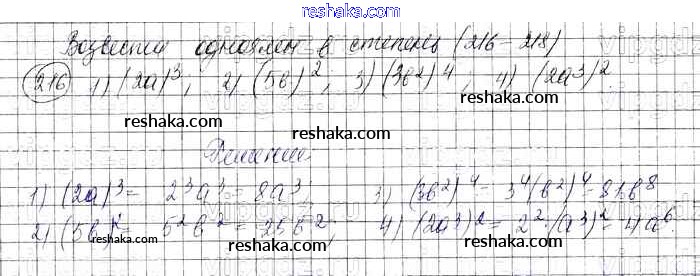 reshaka.com
Возвести одночлен в степень (216-218)
216 1) (2a)³; 2) (5в)²; 3) (3в²)⁴; 4) (2a³)².
reshaka.com reshaka.com
Решение
reshaka.com reshaka.com
1) (2a)³ = 2³a³ = 8a³; 3) (3в²)⁴ = 3⁴(в²)⁴ = 81в⁸
2) (5в)² = 5²в² = 25в²; 4) (2a³)² = 2²·(a³)² = 4a⁶.
reshaka.com reshaka.com
reshaka.com